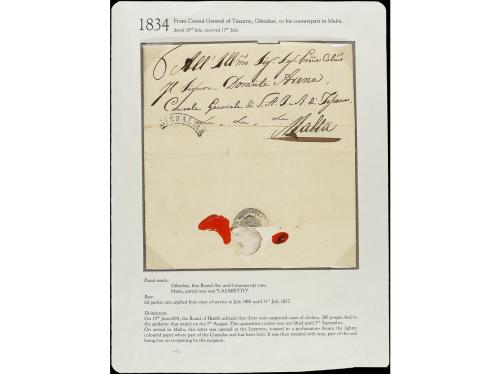 1834
From Consul General of Tuscany, Gibraltar, to his counterpart in Malta.
dated 10th July, received 17th July.
6
All' Illmo Sigr
Il Signor Dorante Arena
Console Generale di S. A. I. R. di Toscana
GIBRALTAR
Malta
Postal marks:
Gibraltar, first Boxed Arc and 6 manuscript rate.
Malta, partial wax seal "LAZARETTO"
Rate:
6d packet rate applied from start of service in July 1806 until 31st July 1857.
Disinfection
On 19th June 1834, the Board of Health advised that there were suspected cases of cholera. 380 people died in
the epidemic that ended on the 7th August. The quarantine cordon was not lifted until 7th September.
On arrival in Malta, this letter was opened at the Lazaretto, toasted in a profumatoio (hence the lighter
coloured paper where part of the Consulate seal has been lost). It was then resealed with wax, part of the seal
being lost on reopening by the recipient.